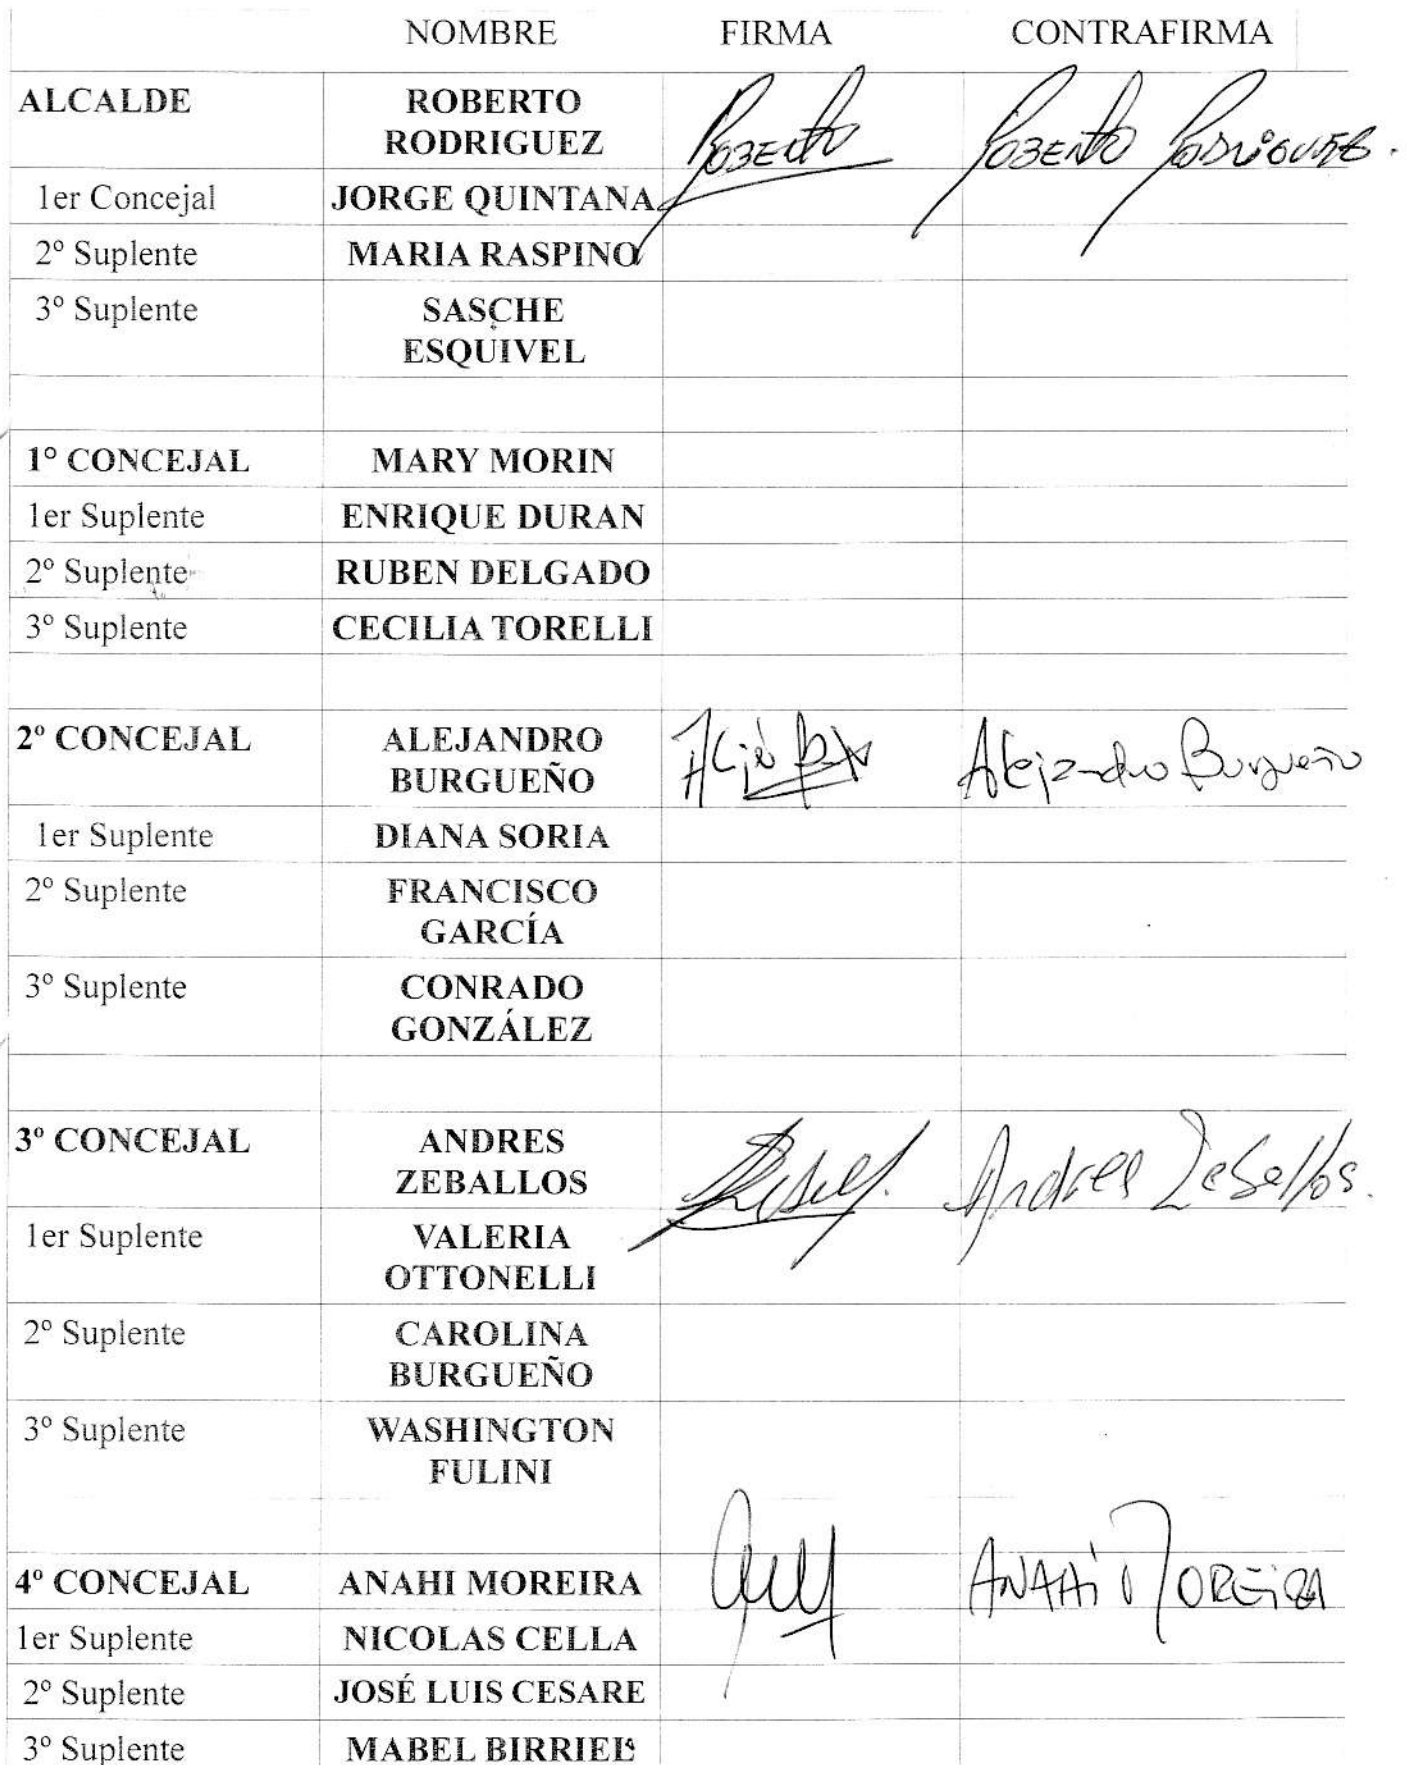 NOMBRE FIRMA CONTRAFIRMA
ALCALDE ROBERTO
RODRIGUEZ Roberto Roberto Rodriguez.
1er Concejal JORGE QUINTANA
2º Suplente MARIA RASPINO
3º Suplente SASCHE
ESQUIVEL
1º CONCEJAL MARY MORIN
1er Suplente ENRIQUE DURAN
2º Suplente RUBEN DELGADO
3º Suplente CECILIA TORELLI
2º CONCEJAL ALEJANDRO
BURGUEÑO Alejandro Burgueño
1er Suplente DIANA SORIA
2º Suplente FRANCISCO
GARCÍA
3º Suplente CONRADO
GONZÁLEZ
3º CONCEJAL ANDRES
ZEBALLOS Andres Zeballos.
1er Suplente VALERIA
OTTONELLI
2º Suplente CAROLINA
BURGUEÑO
3º Suplente WASHINGTON
FULINI
4º CONCEJAL ANAHI MOREIRA ANAHí MOREiRA
1er Suplente NICOLAS CELLA
2º Suplente JOSÉ LUIS CESARE
3º Suplente MABEL BIRRIEL